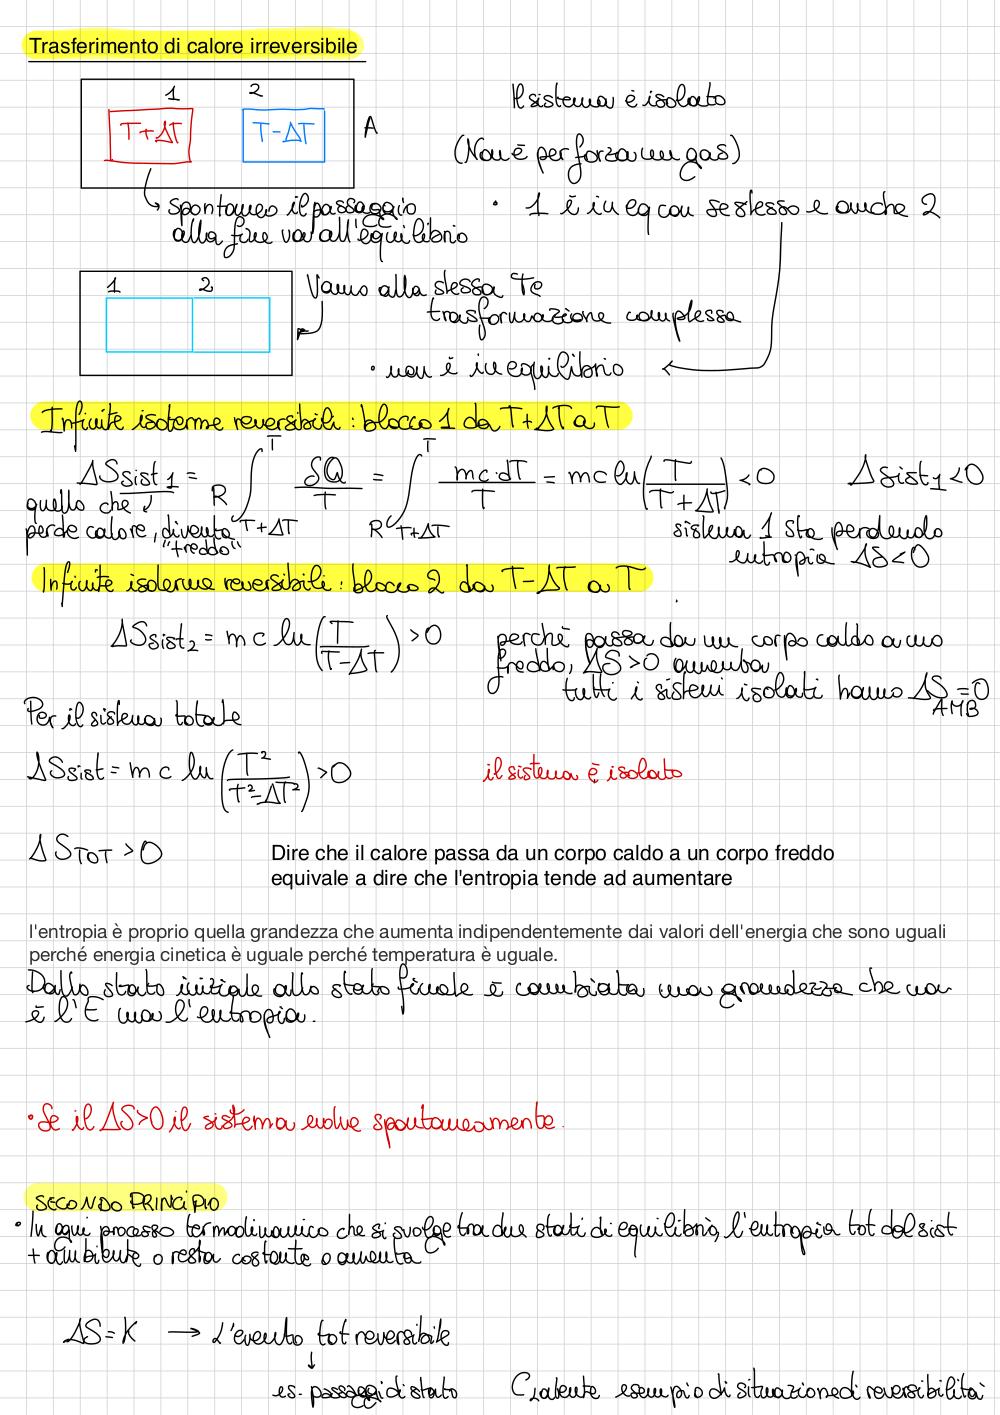 Trasferimento di calore irreversibile
1 2
T+ΔT T-ΔT A
Il sistema è isolato
(Non è per forza un gas)
↳ spontaneo il passaggio
alla fine va all'equilibrio
• 1 è in eq con se stesso e anche 2
1 2
Vanno alla stessa Te
trasformazione complessa
• non è in equilibrio
Infinite isoterme reversibili: blocco 1 da T+ΔT a T
ΔSsist₁ = R∫_{T+ΔT}^{T} δQ/T = R∫_{T+ΔT}^{T} mc·dT/T = mc ln(T/(T+ΔT)) <0 Δsist₁<0
quello che
perde calore, diventa
"freddo"
sistema 1 sta perdendo
entropia ΔS<0
Infinite isoterme reversibili: blocco 2 da T-ΔT a T
ΔSsist₂ = mc ln(T/(T-ΔT)) >0
perché passa da un corpo caldo a uno
freddo, ΔS>0 aumenta
tutti i sistemi isolati hanno ΔS_AMB=0
Per il sistema totale
ΔSsist = mc ln(T²/(T²-ΔT²)) >0
il sistema è isolato
ΔS_TOT >0
Dire che il calore passa da un corpo caldo a un corpo freddo
equivale a dire che l'entropia tende ad aumentare
l'entropia è proprio quella grandezza che aumenta indipendentemente dai valori dell'energia che sono uguali
perché energia cinetica è uguale perché temperatura è uguale.
Dallo stato iniziale allo stato finale è cambiata una grandezza che non
è l'E ma l'entropia.
• Se il ΔS>0 il sistema evolve spontaneamente.
SECONDO PRINCIPIO
• In ogni processo termodinamico che si svolge tra due stati di equilibrio, l'entropia tot del sist
+ ambiente o resta costante o aumenta
ΔS=K → L'evento tot reversibile
↓
es. passaggi di stato C latente esempio di situazione di reversibilità